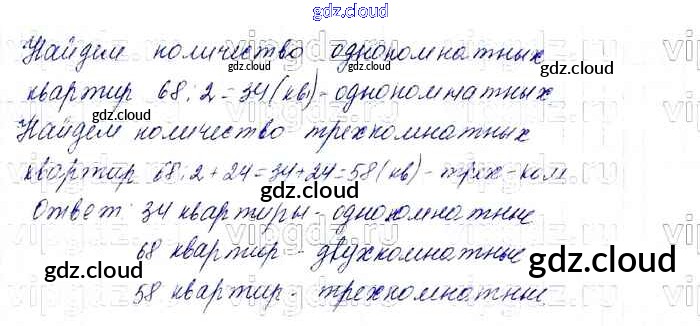 gdz.cloud
Найдем количество однокомнатных
gdz.cloud gdz.cloud
квартир 68:2=34(кв)-однокомнатных
gdz.cloud gdz.cloud
Найдем количество трехкомнатных
квартир 68:2+24=34+24=58(кв)-трех-ком
gdz.cloud
Ответ: 34 квартиры-однокомнатные
68 квартир - двухкомнатные
gdz.cloud gdz.cloud
58 квартир - трехкомнатные